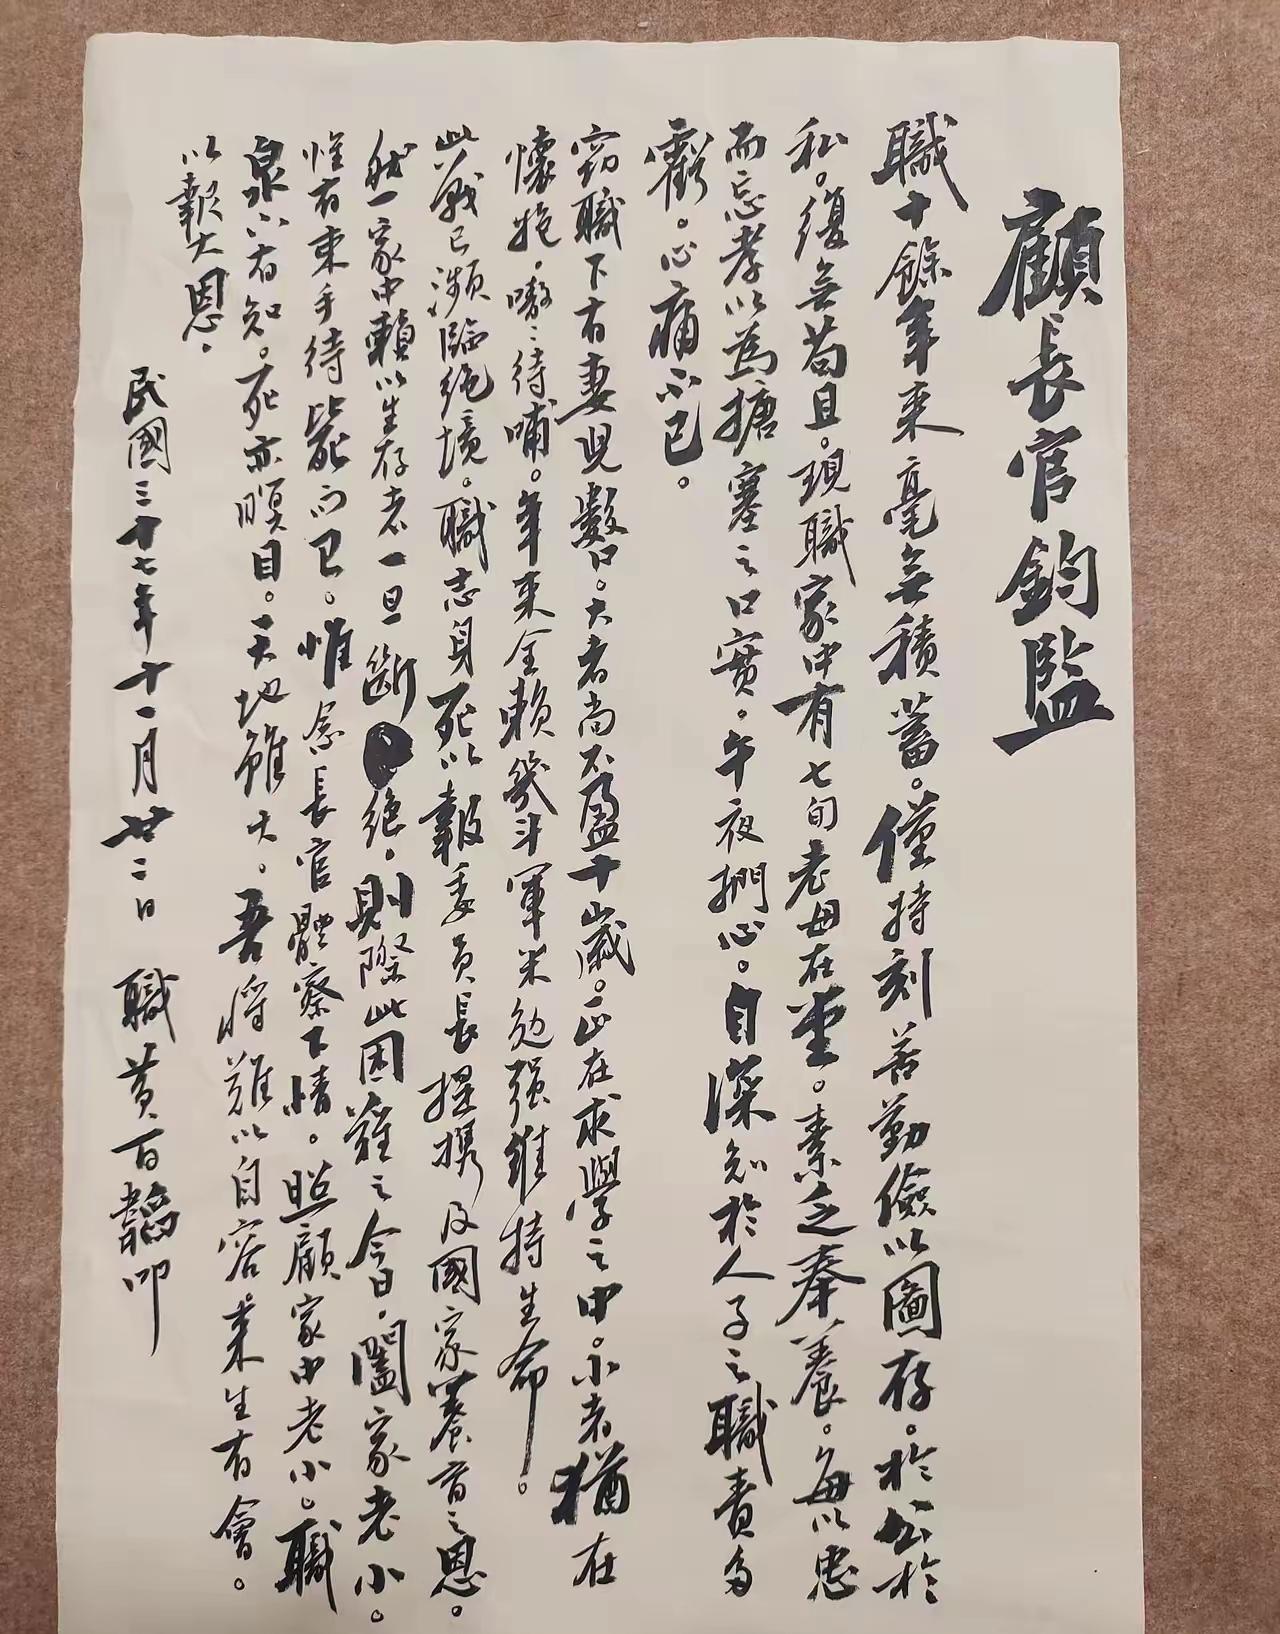 顧長官鈞監
職十餘年來毫無積蓄。僅持刻苦勤儉以圖存。於公於
私。復無苟且。現職家中有七旬老母在堂。素乏奉養。每以忠
而忘孝以為搪塞之口實。午夜捫心。自深知於人子之職責多
虧。心痛不已。
竊職下有妻児數口。大者尚不盈十歲。正在求學之中。小者猶在
懷抱。嗷々待哺。年來全賴幾斗軍米勉强維持生命。
此戰已瀕臨絕境。職志身死以報委員長提携及國家養育之恩。
然一家中賴以生存者一旦斷絕。則際此困難之今日。闔家老小。
惟有束手待斃而已。惟念長官體察下情。照顧家中老小。職
泉下有知。死亦瞑目。天地雖大。吾將難以自容。来生有會。
以報大恩。
民國三十七年十一月廿二日 職黄百韜叩